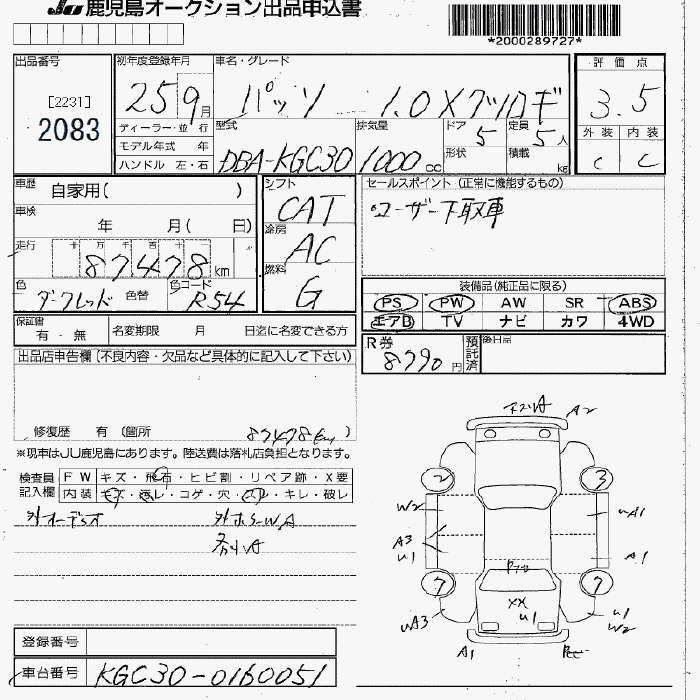 JU 鹿児島オークション出品申込書
*2000289727*
出品番号
[2231]
2083
初年度登録年月
25 9月
ディーラー・並 行
モデル年式 年
ハンドル 左・右
車名・グレード
パッソ 1.0 X クツロギ
型式
DBA-KGC30
排気量
1000cc
ドア 5
形状
定員 5人
積載 kg
評 価 点
3.5
外 装 内 装
C C
車歴 自家用( )
車検 年 月( 日)
走行 十 万 千 百 十
87478km
色 ダークレッド 色替
色コード R54
シフト
CAT
冷房
AC
燃料
G
セールスポイント (正常に機能するもの)
ユーザー下取車
装備品(純正品に限る)
PS PW AW SR ABS
エアB TV ナビ カワ 4WD
保証書
有 ・ 無
名変期限 月 日迄に名変できる方
R券
8790円
預託済
後日品
出品店申告欄(不良内容・欠品など具体的に記入して下さい)
修復歴 有 (箇所 87478km )
※現車はJU鹿児島にあります。陸送費は落札店負担となります。
検査員記入欄
FW キズ・飛石・ヒビ割・リペア跡・X要
内装 キズ・汚レ・コゲ・穴・スレ・キレ・破レ
外オーディオ
外ホシW.A
A2
2 3
W2
uA1
A3
u1
A1
7 7
XX
u1
uA3
u1
W2
A1
登録番号
車台番号 KGC30-0160051